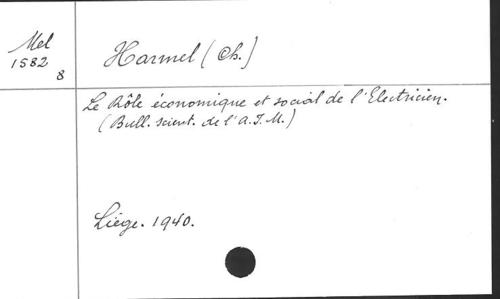 Mel
1582
8
Harmel (Ch.]
Le Rôle économique et social de l'Electricien.
(Bull. scient. de l'A.I.M.)
Liège. 1940.